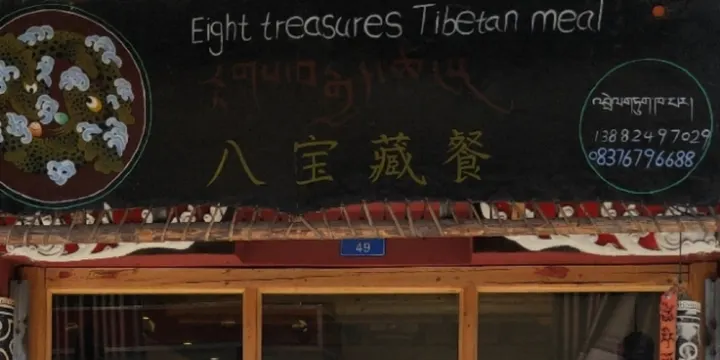 Eight treasures Tibetan meal
八宝藏餐
འབྲེལ་གཏུག་ཁ་པར།
13882497029
08376796688
49